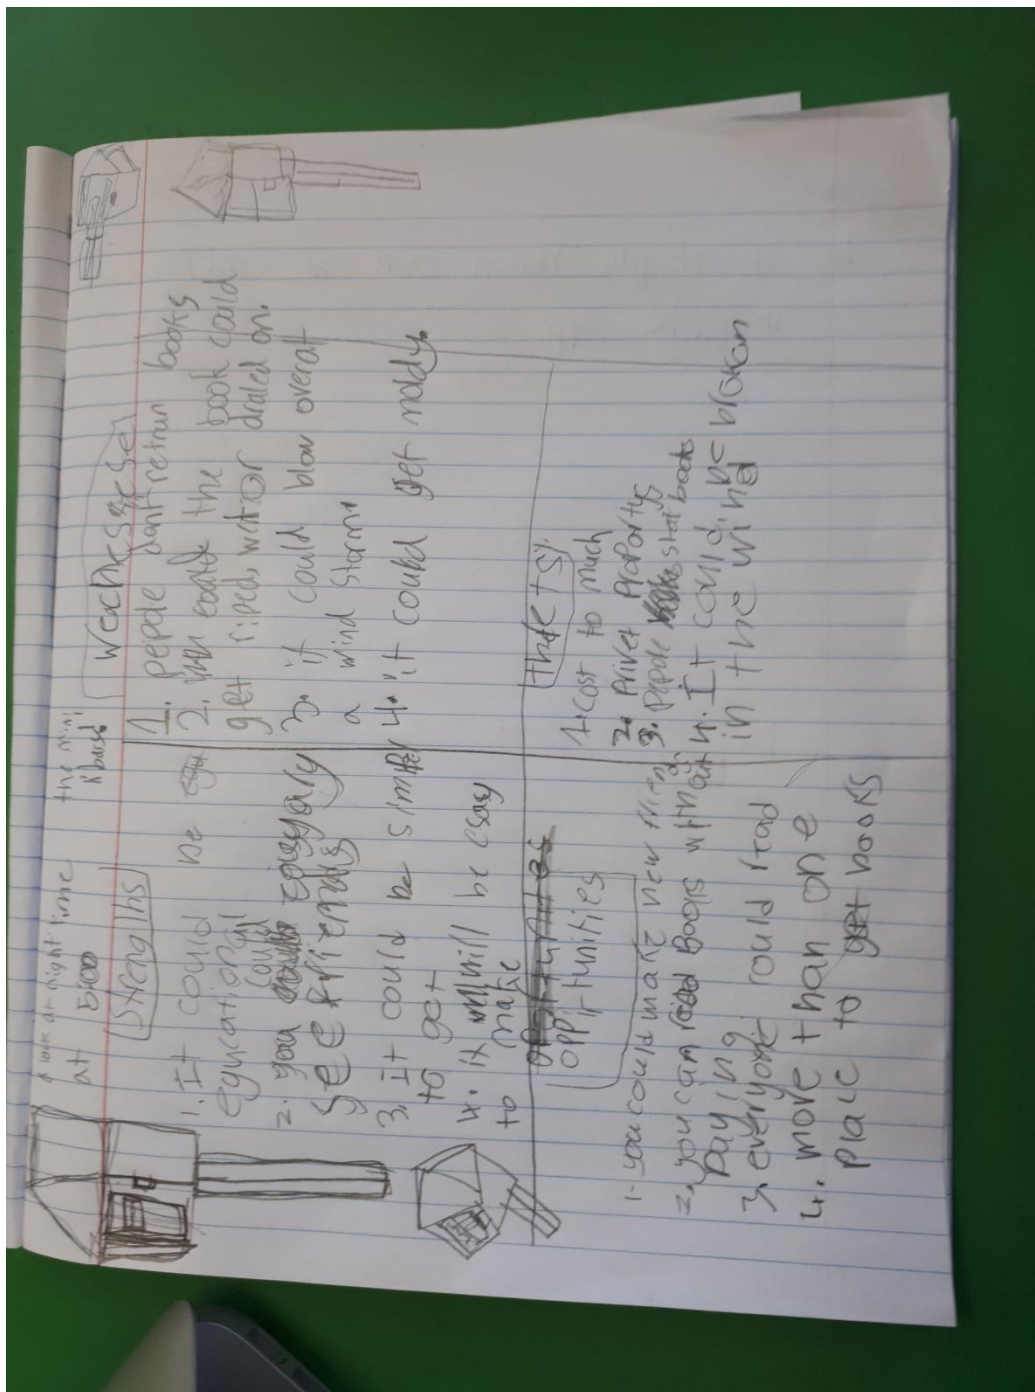 at night time
at 5:00
the mini
Strengths
1. It could be
equcational
2. you could
see friends
3. It could be simple
to get
4. it will be esay
to make
weacnesses
1. pepole dont retrun books
2. the book could
get riped, wet or draled on.
3. if could blow over at
a wind storm.
4. it could get moldy.
oppirtunities
1- you could make new frien
2. you can Books without
paying
3. everyone could read
4. more than one
place to get books
1. cost to much
2. privet proporty
3. pepole stral books
4. It could be brokan
in the wind